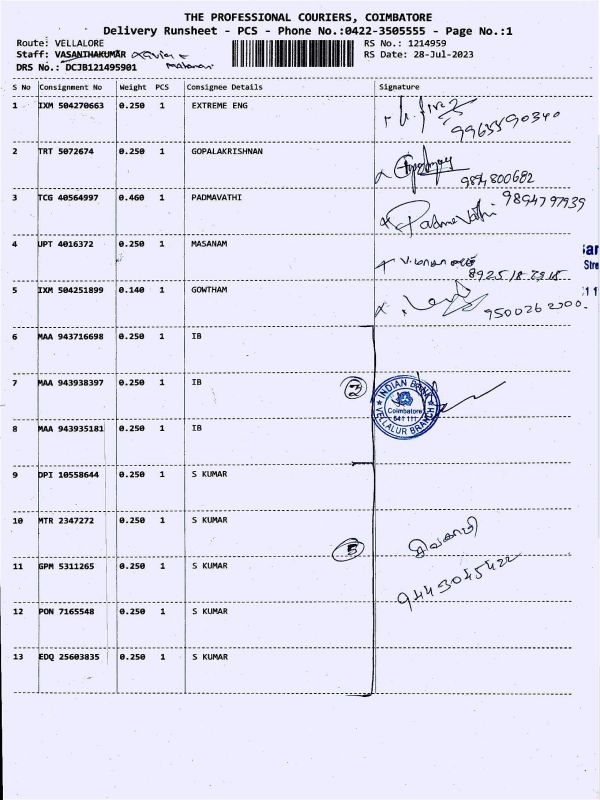 THE PROFESSIONAL COURIERS, COIMBATORE
Delivery Runsheet - PCS - Phone No.:0422-3505555 - Page No.:1
Route: VELLALORE RS No.: 1214959
Staff: VASANTHAKUMAR RS Date: 28-Jul-2023
DRS No.: DCJB121495901
S No Consignment No Weight PCS Consignee Details Signature
1 IXM 504270663 0.250 1 EXTREME ENG
9963590340
2 TRT 5072674 0.250 1 GOPALAKRISHNAN
9894800682
3 TCG 40564997 0.460 1 PADMAVATHI Padmavathi 9894797939
4 UPT 4016372 0.250 1 MASANAM
8925187318
5 IXM 504251899 0.140 1 GOWTHAM
9500262200.
6 MAA 943716698 0.250 1 IB
7 MAA 943938397 0.250 1 IB
INDIAN BANK
Coimbatore
641 111
VELLALUR BRANCH
8 MAA 943935181 0.250 1 IB
9 DPI 10558644 0.250 1 S KUMAR
10 MTR 2347272 0.250 1 S KUMAR
5
11 GPM 5311265 0.250 1 S KUMAR
9443045422
12 PON 7165548 0.250 1 S KUMAR
13 EDQ 25603835 0.250 1 S KUMAR